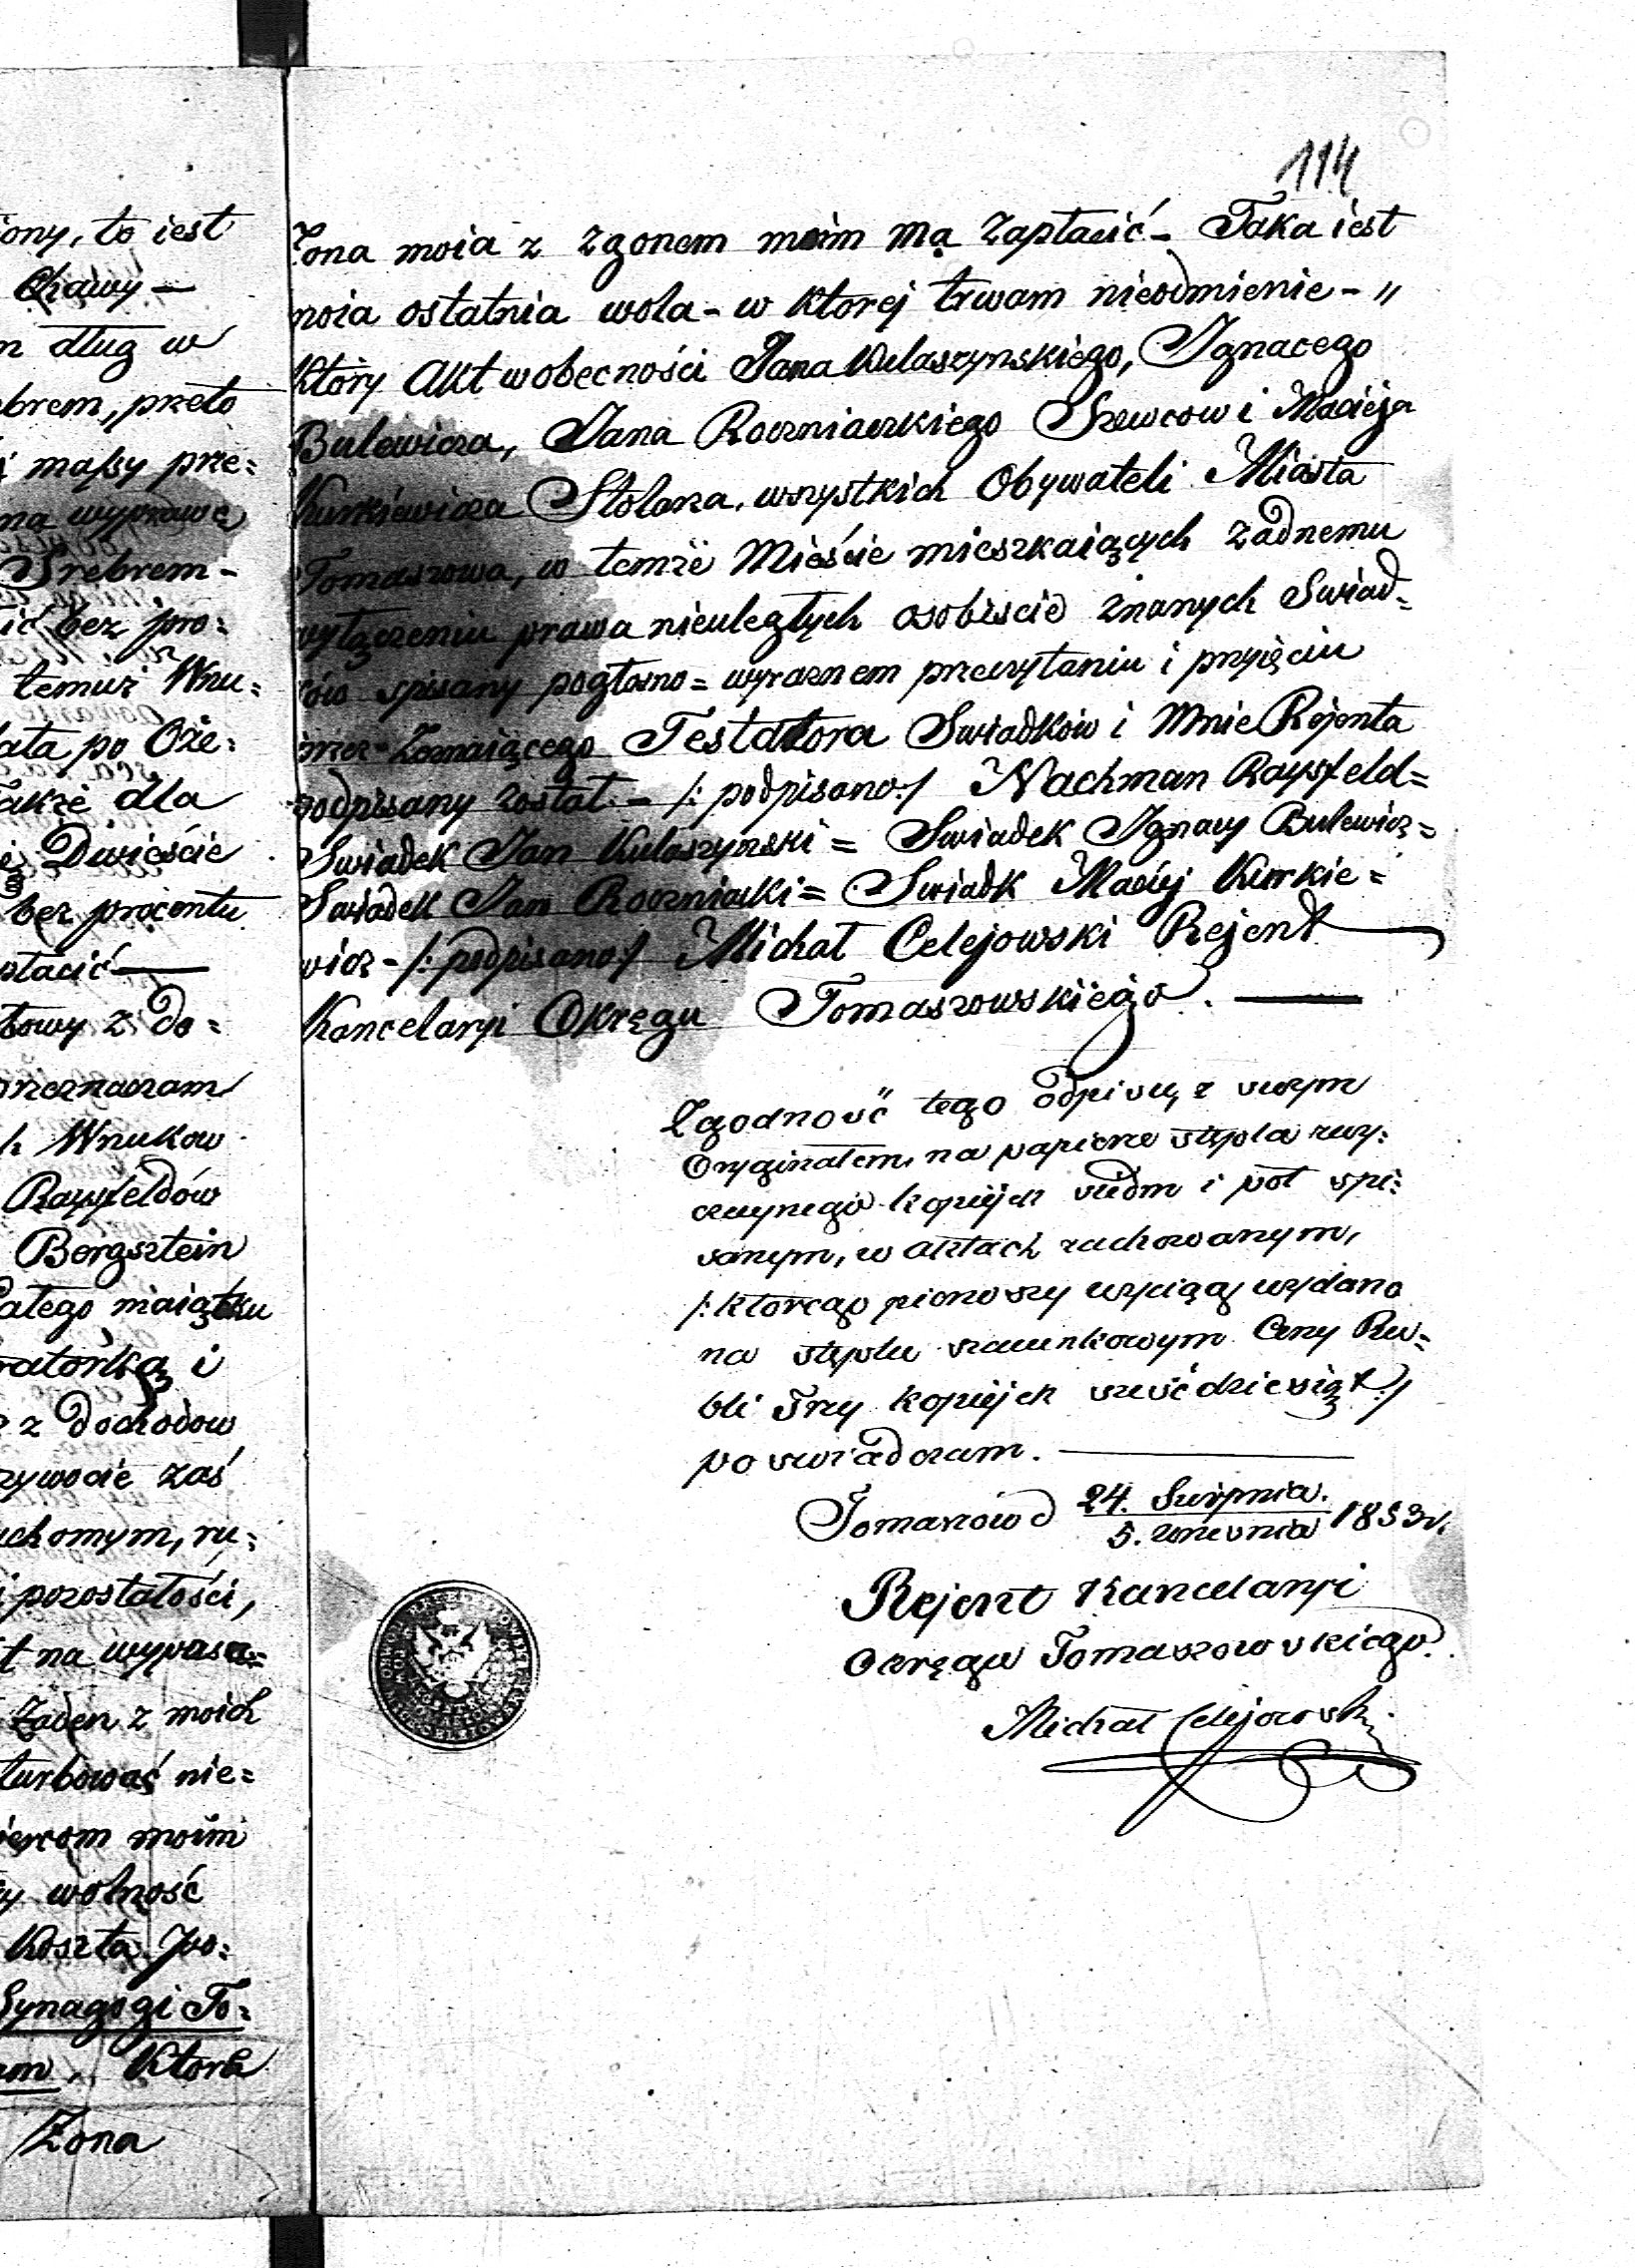 114
iony, to iest
Chawy —
m dług w
ebrem, przeto
massy prze=
na wyprawę
Srebrem -
ić bez pro:
temuż Wnu:
lata po Oże:
także dla
Dwieście
bez procentu
płacić —
towy z do=
przeznaczam
h Wnukow
Rayffeldów
Bergsztein
Całego maiątku
ratorką i
z dochodow
żywocie zaś
uchomym, ru:
i pozostałości,
t na
Żaden z moich
turbować nie=
iercom moim
y wolność
Koszta po:
Synagogi To:
am, Ktorą
Żona
Żona moia z zgonem moim ma zapłacić - Taka iest
moia ostatnia wola - w Ktorej trwam nieodmienie - "
Ktory Akt wobecności Jana Kulaszynskiego, Ignacego
Bulewicza, Jana Roczniackiego Szewcow i Macieja
Kurkiewicza Stolarza, wszystkich Obywateli Miasta
Tomaszowa, w temże Mieście mieszkaiących żadnemu
wyłączeniu prawa nieuległych osobiście znanych Swiad=
ków spisany pogłosno = wyraznem przeczytaniu i przyięciu
przez Zeznaiącego Testatora Swiadków i Mnie Rejenta
podpisany został - /: podpisano :/ Nachman Raysfeld =
Swiadek Jan Kulaszynski = Swiadek Ignacy Bulewicz =
Swiadek Jan Roczniacki = Swiadk Maciej Kurkie=
wicz - /: podpisano :/ Michał Celejowski Rejent —
Kancelaryi Okręgu Tomaszowskiego. —
Zgodność tego odpisu, z swym
Oryginałem, na papierze stępla zwy:
czaynego kopiejek siedm i poł spi:
sanym, w Aktach zachowanym,
/: Ktorego pierwszy wyciąg wydano
na stęplu szacunkowym Ceny Ru=
bli Trzy kopiejek sześćdziesiąt :/
poswiadczam. —
Tomaszów d 24. Sierpnia. / 5. Wrzesnia 1853 r.
Rejent Kancelaryi
Okręgu Tomaszowskiego.
Michał Celejowski